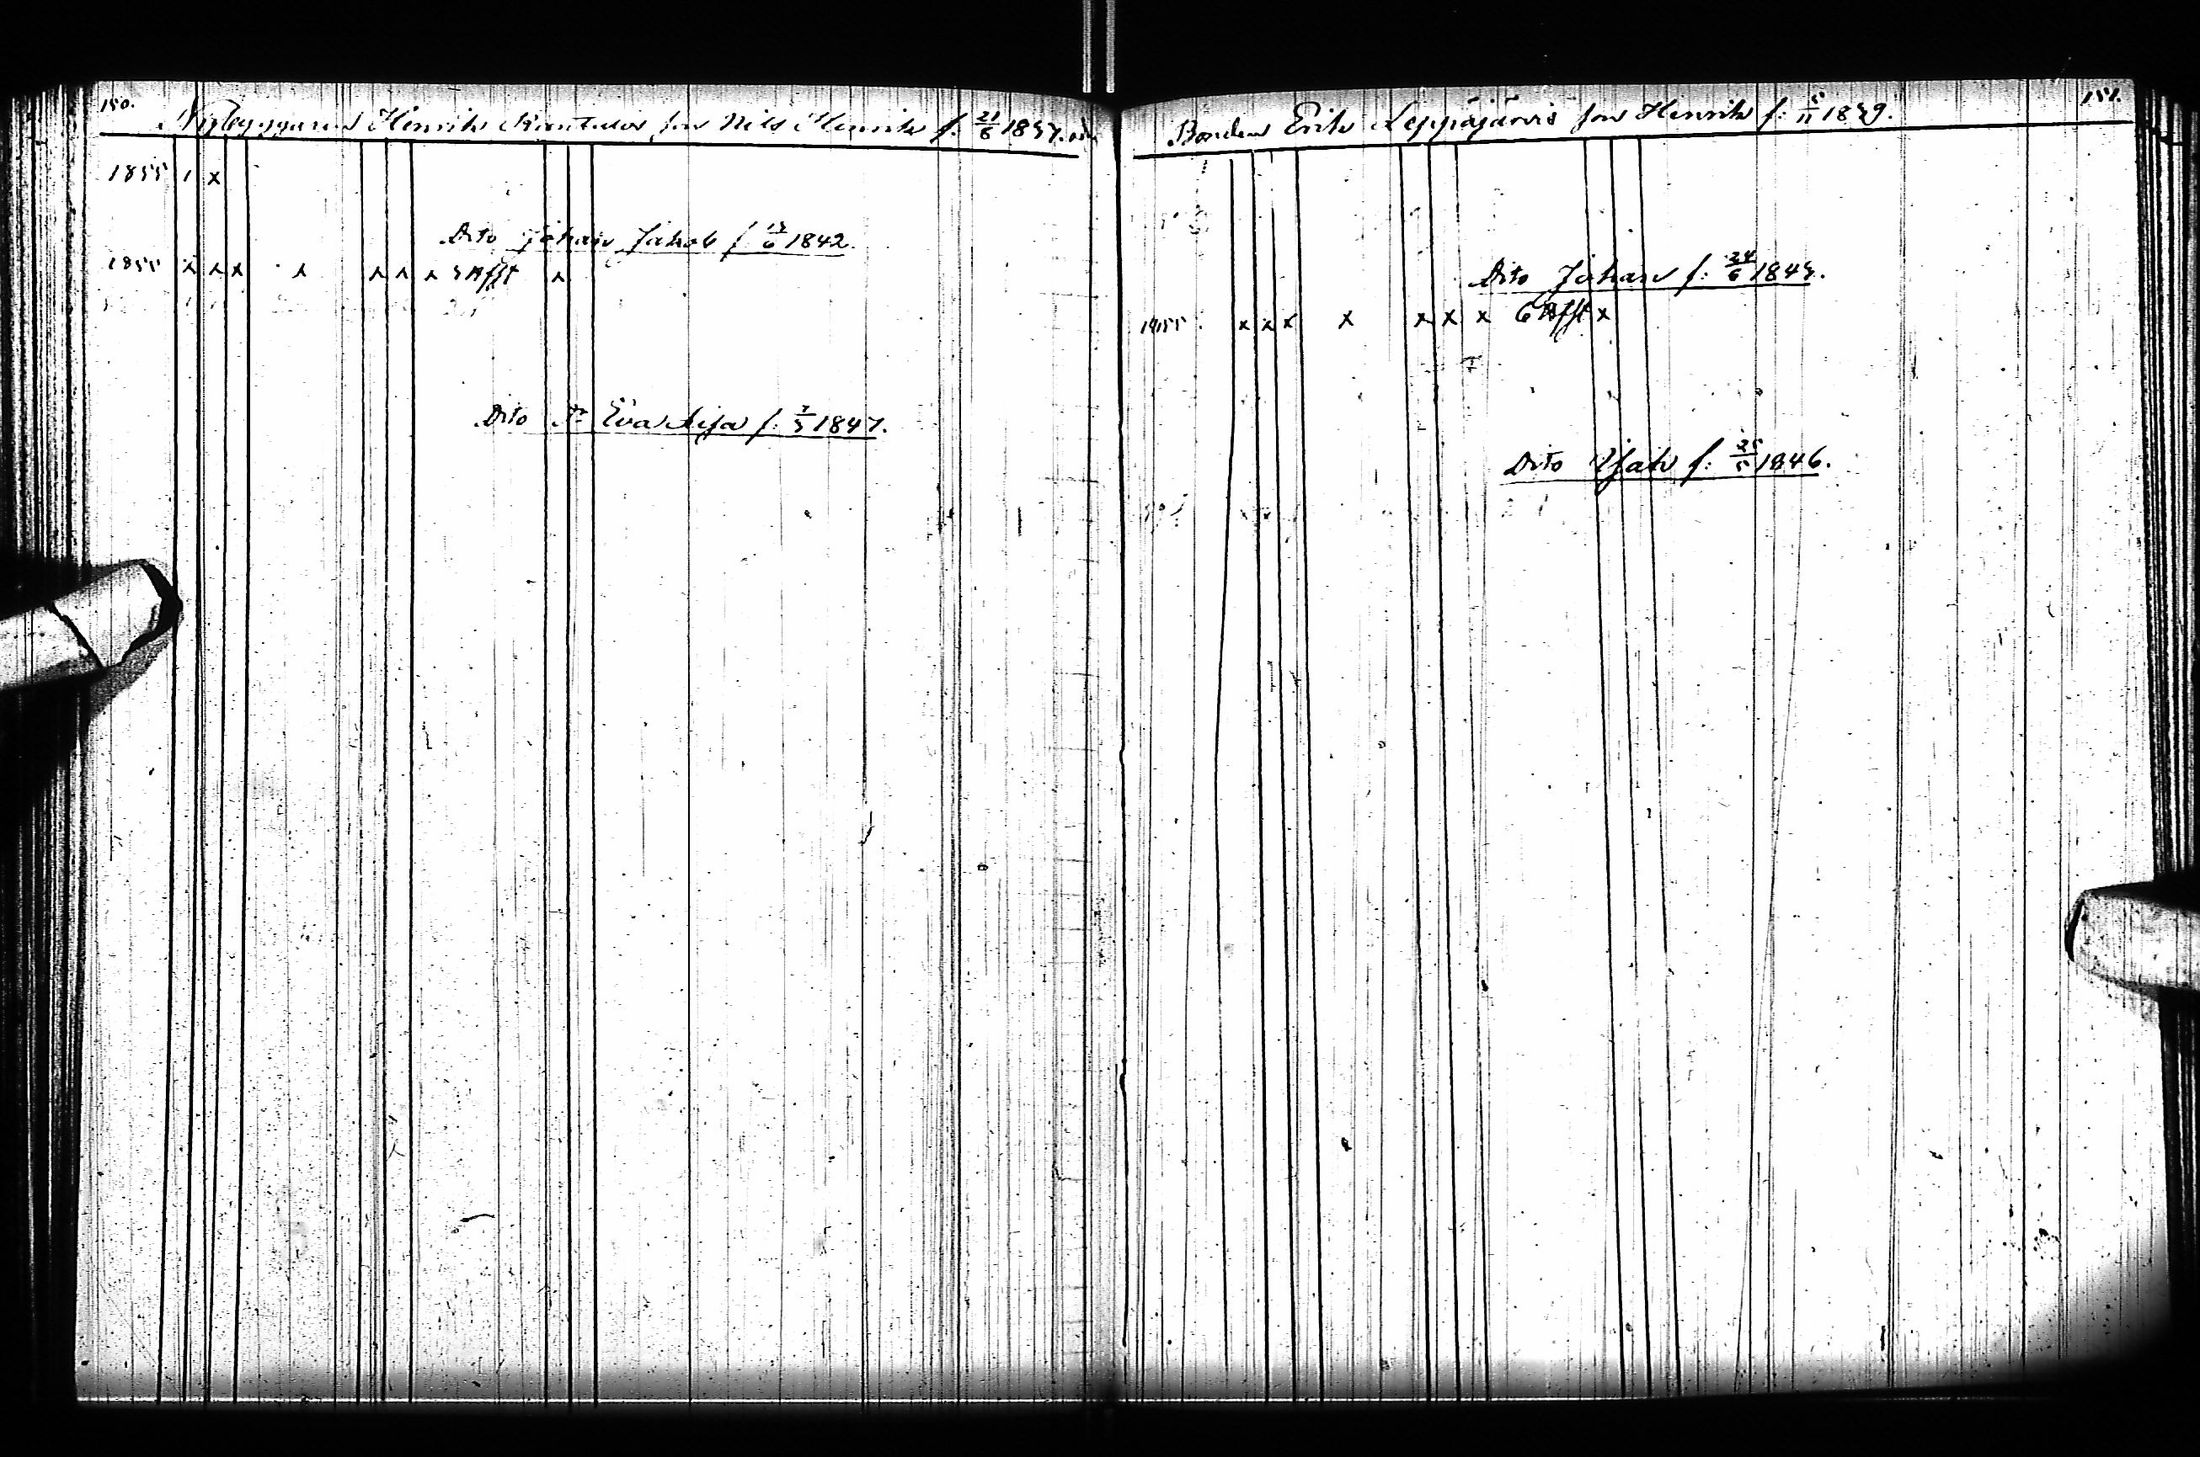 150.
Nybyggaren Henrik Rantatas son Nils Henrik f. 21/6 1837.
1855 1 x
Dito Johan Jakob f 13/6 1842.
1855 x x x x x x x 3 Afft x
Dito Dr Eva Lisa f. 7/3 1847.
151.
Bonden Erik Leppäjärvis son Henrik f: 5/11 1839.
Dito Johan f: 24/6 1843.
1855 x x x x x x x 6 Afft x
Dito Isak f: 25/5 1846.